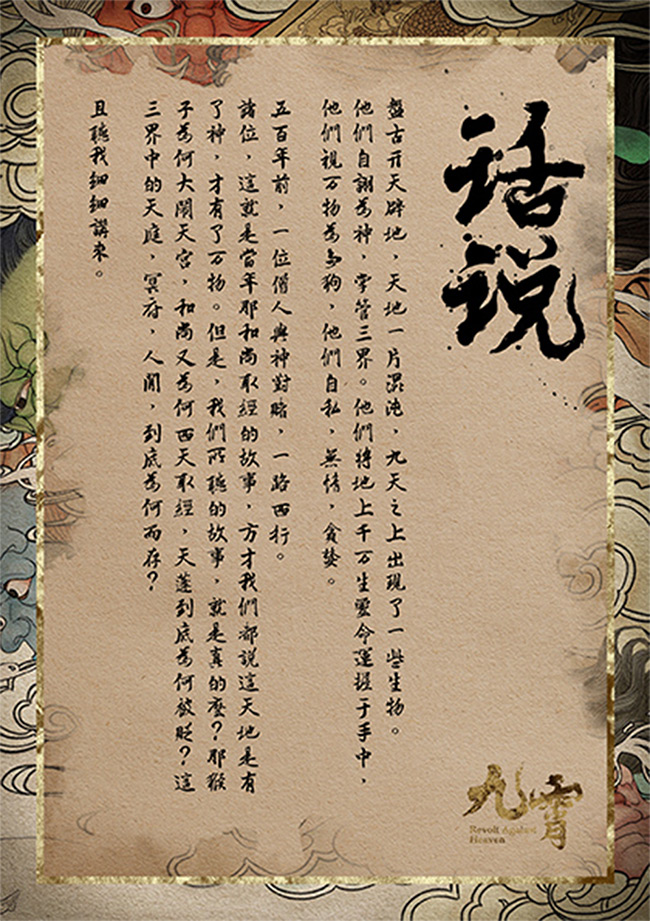 话说
盤古开天辟地，天地一片混沌，九天之上出現了一些生物。
他們自詡為神，掌管三界。他們將地上千万生靈命運握于手中，
他們視万物為芻狗，他們自私，無情，貪婪。
五百年前，一位僧人與神對賭，一路西行。
諸位，這就是當年那和尚取經的故事，方才我們都說這天地是有
了神，才有了万物。但是，我們所聽的故事，就是真的麼？那猴
子為何大鬧天宮，和尚又為何西天取經，天蓬到底為何被貶？這
三界中的天庭，冥府，人間，到底為何而存？
且聽我細細講來。
九霄
Revolt Against
Heaven